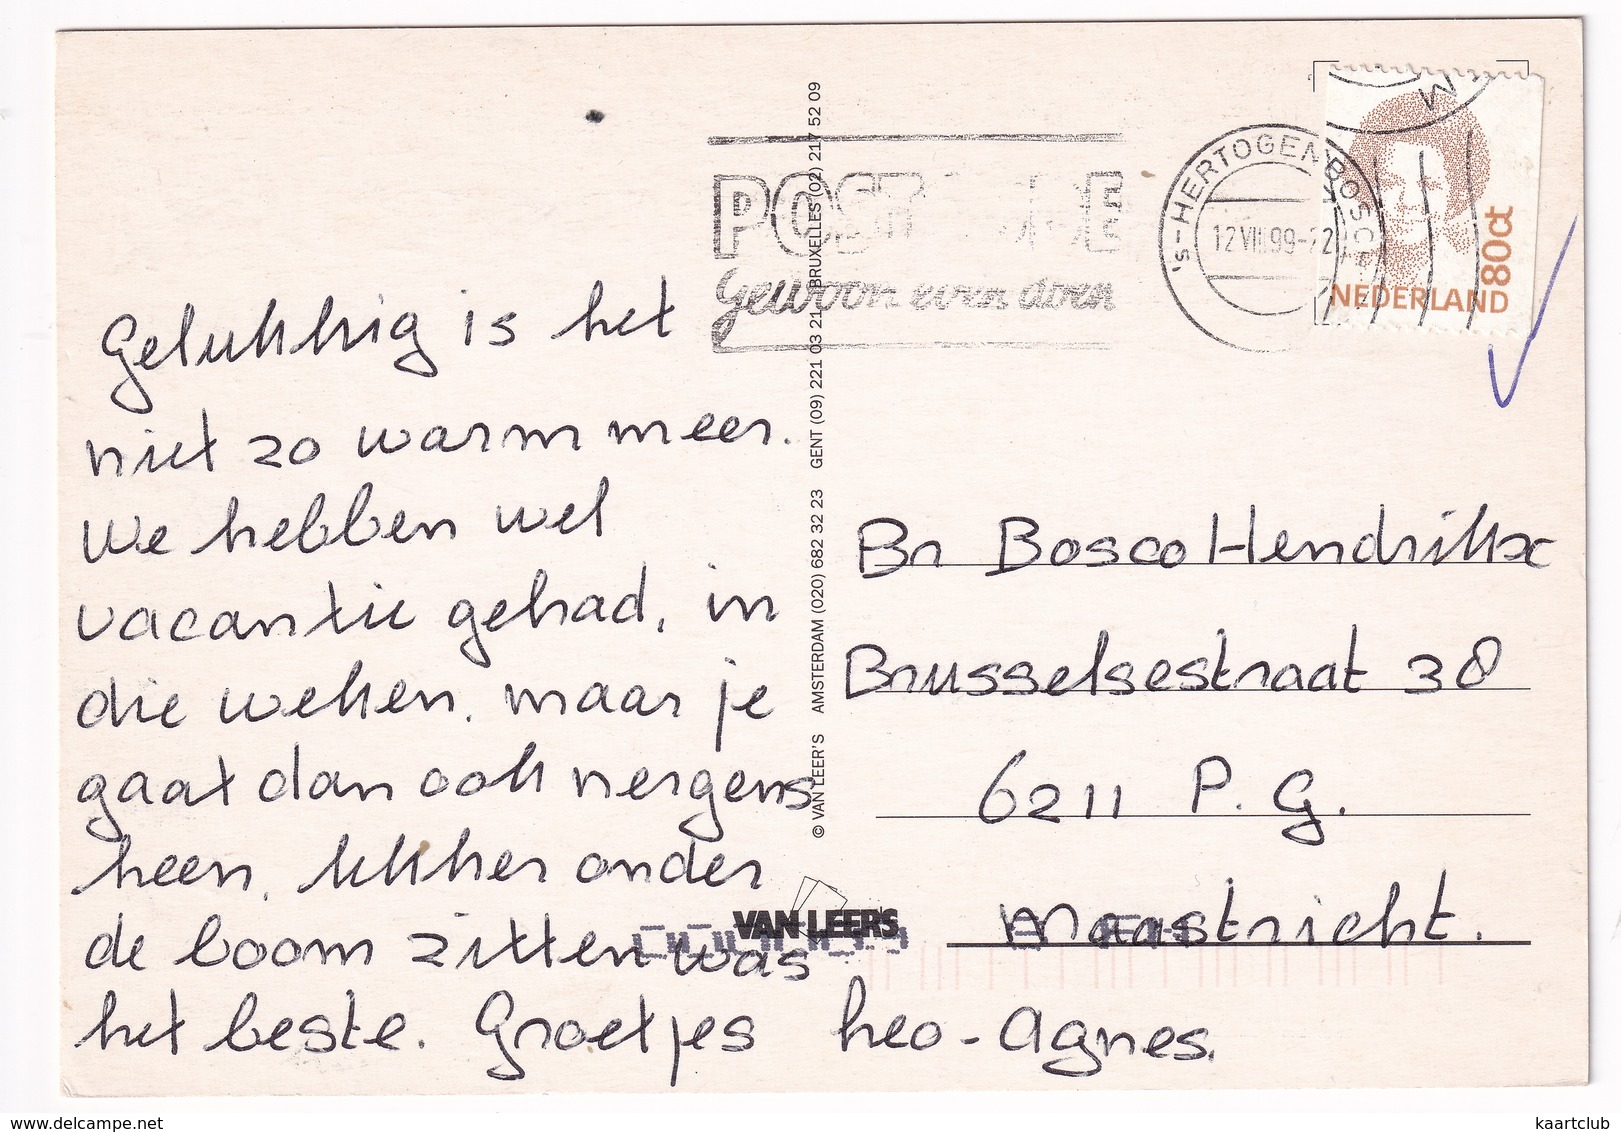 Gelukkig is het
niet zo warm meer.
We hebben wel
vacantie gehad, in
die weken, maar je
gaat dan ook nergens
heen, lekker onder
de boom zitten was
het beste. Groetjes Leo - Agnes.
© VAN LEER'S AMSTERDAM (020) 682 32 23 GENT (09) 221 03 21 BRUXELLES (02) 217 52 09
POST
Gewoon even doen
's-HERTOGENBOSCH
12 VIII 99-22
80ct
NEDERLAND
Br Bosco Hendrikx
Brusselsestraat 38
6211 P. G.
Maastricht.
VAN LEER'S
www.delcampe.net
kaartclub